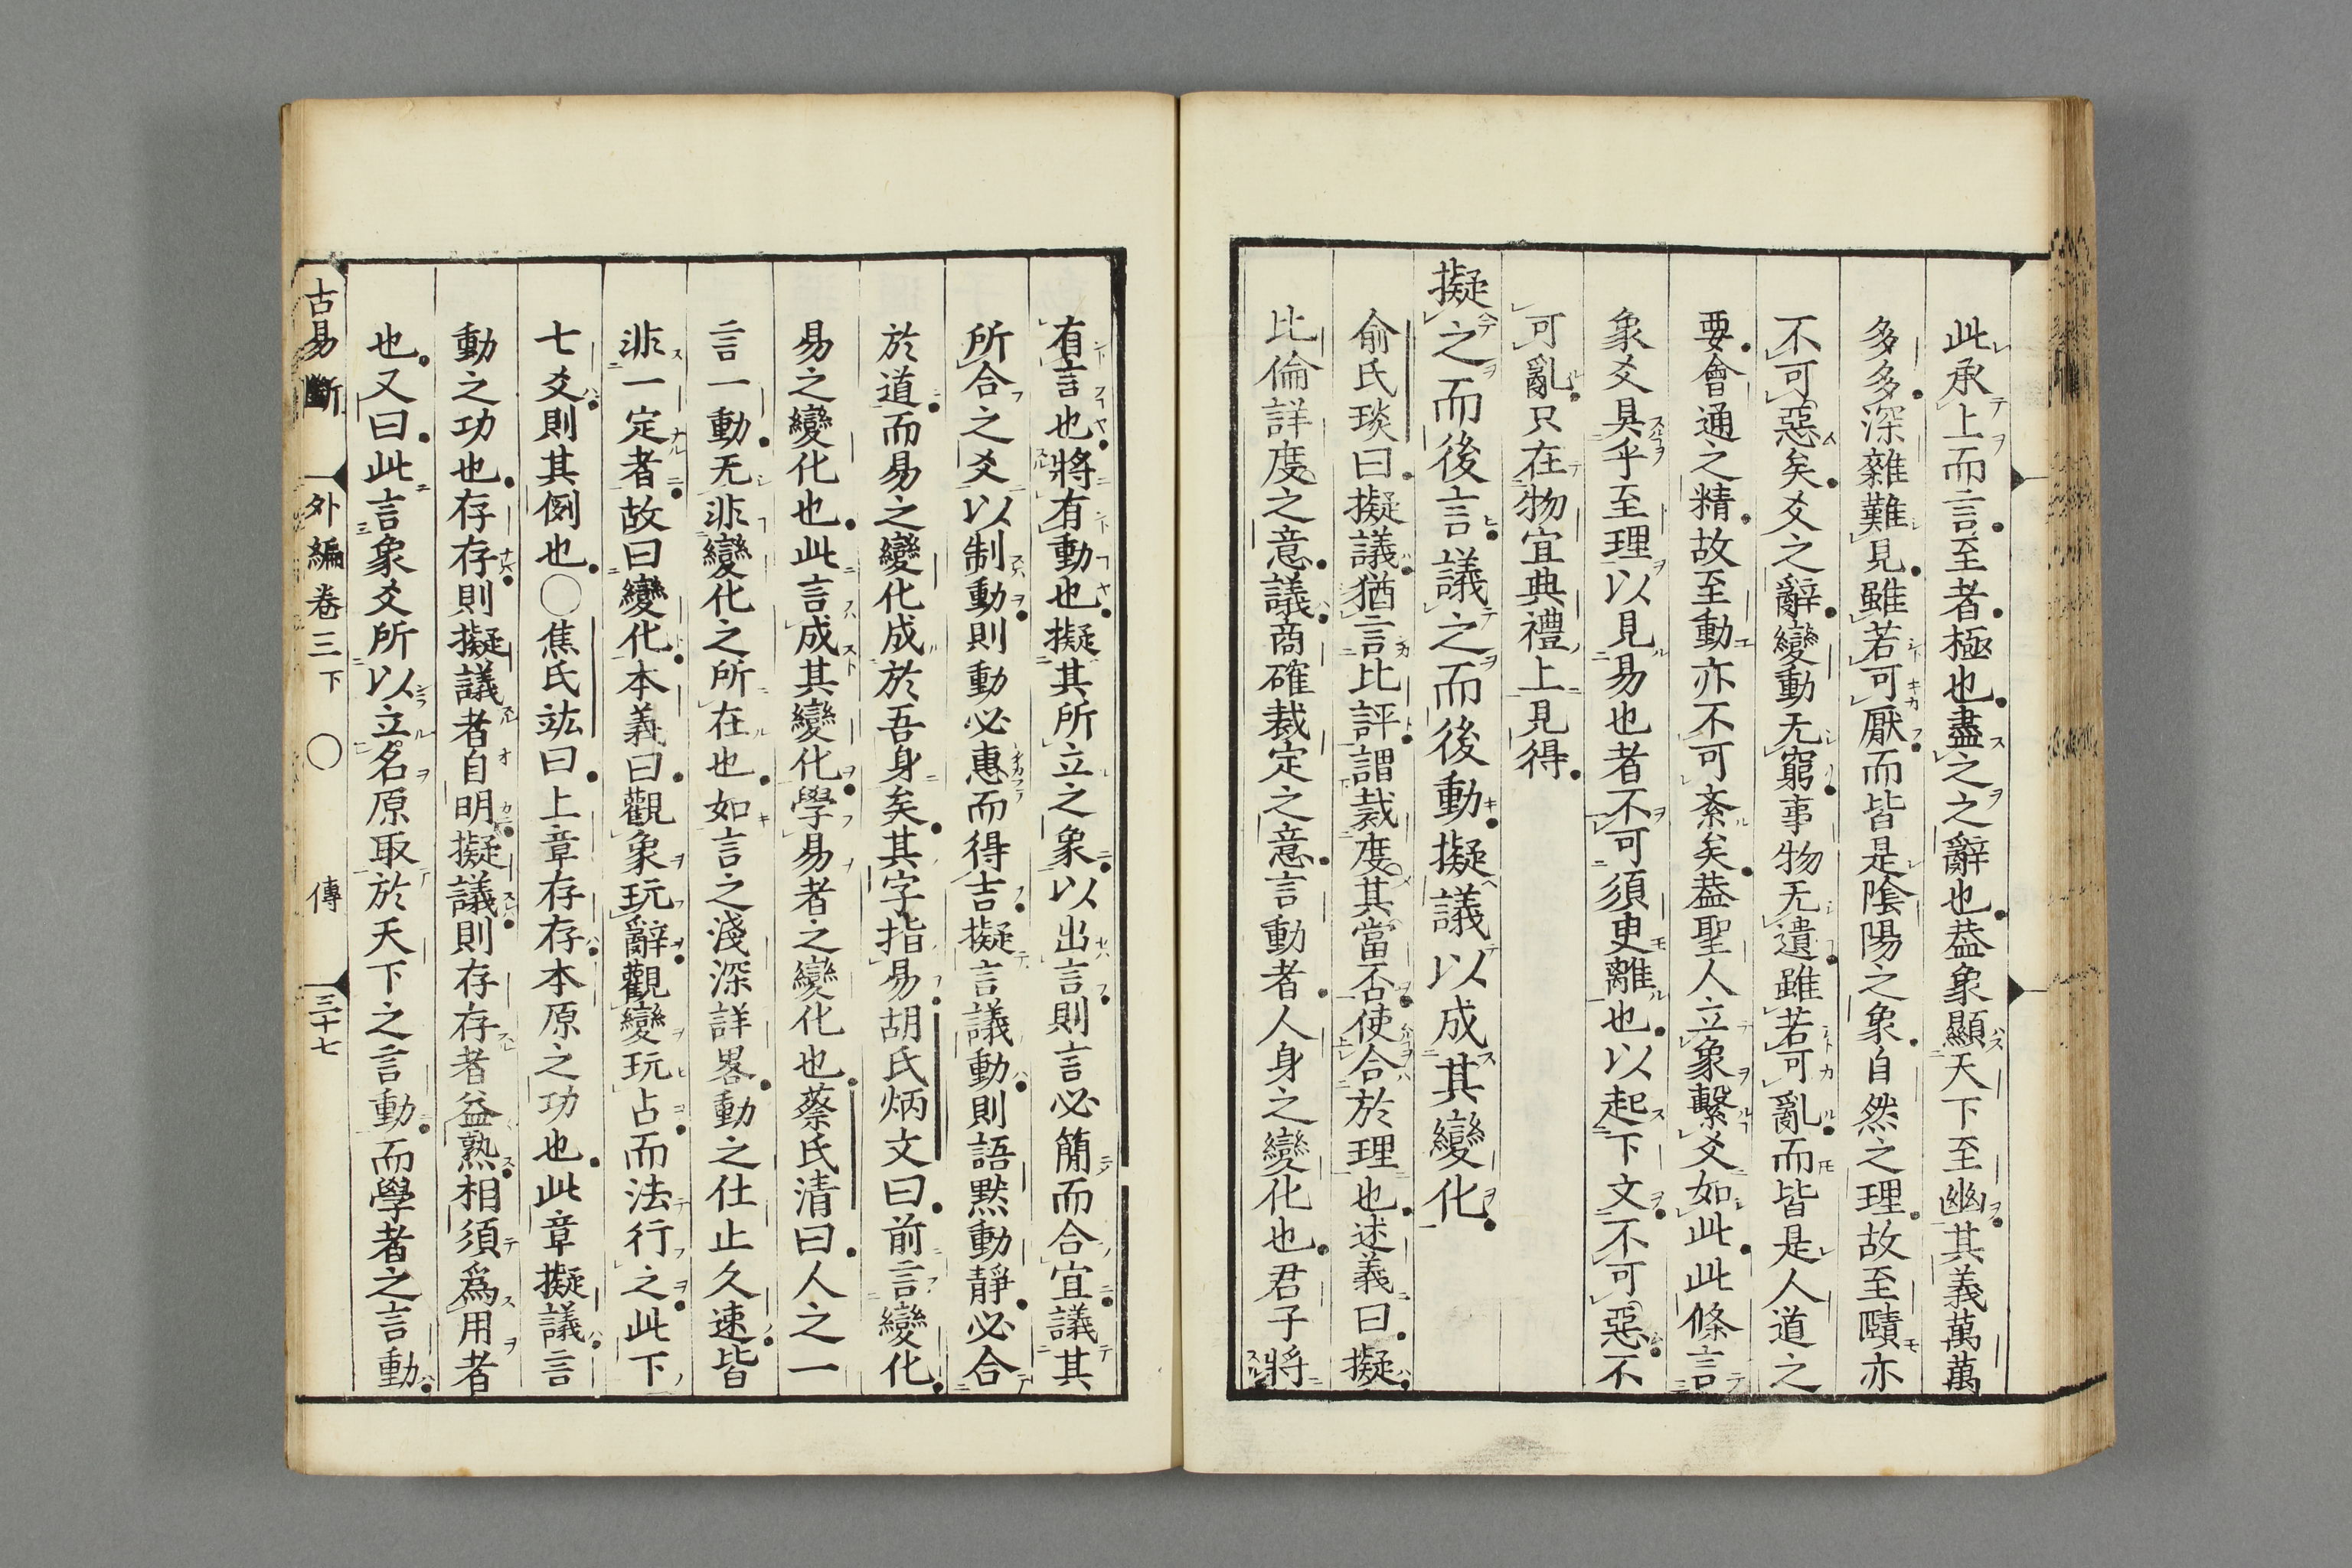 此承上而言至者極也盡之之辭也葢象顯天下至幽其義萬萬
多多深雜難見雖若可厭而皆是陰陽之象自然之理故至賾亦
不可惡矣爻之辭變動无窮事物无遺雖若可亂而皆是人道之
要會通之精故至動亦不可紊矣葢聖人立象繫爻如此此條言
象爻具乎至理以見易也者不可須臾離也以起下文不可惡不
可亂只在物宜典禮上見得
擬之而後言議之而後動擬議以成其變化
俞氏琰曰擬議猶言比評謂裁度其當否使合於理也述義曰擬
比倫詳度之意議商確裁定之意言動者人身之變化也君子將
有言也將有動也擬其所立之象以出言則言必簡而合宜議其
所合之爻以制動則動必惠而得吉擬言議動則語黙動靜必合
於道而易之變化成於吾身矣其字指易胡氏炳文曰前言變化
易之變化也此言成其變化學易者之變化也蔡氏清曰人之一
言一動无非變化之所在也如言之淺深詳畧動之仕止久速皆
非一定者故曰變化本義曰觀象玩辭觀變玩占而法行之此下
七爻則其例也〇焦氏竑曰上章存存本原之功也此章擬議言
動之功也存存則擬議者自明擬議則存存者益熟相須爲用者
也又曰此言象爻所以立名原取於天下之言動而學者之言動
古易斷 外編卷三下 〇 傳 三十七